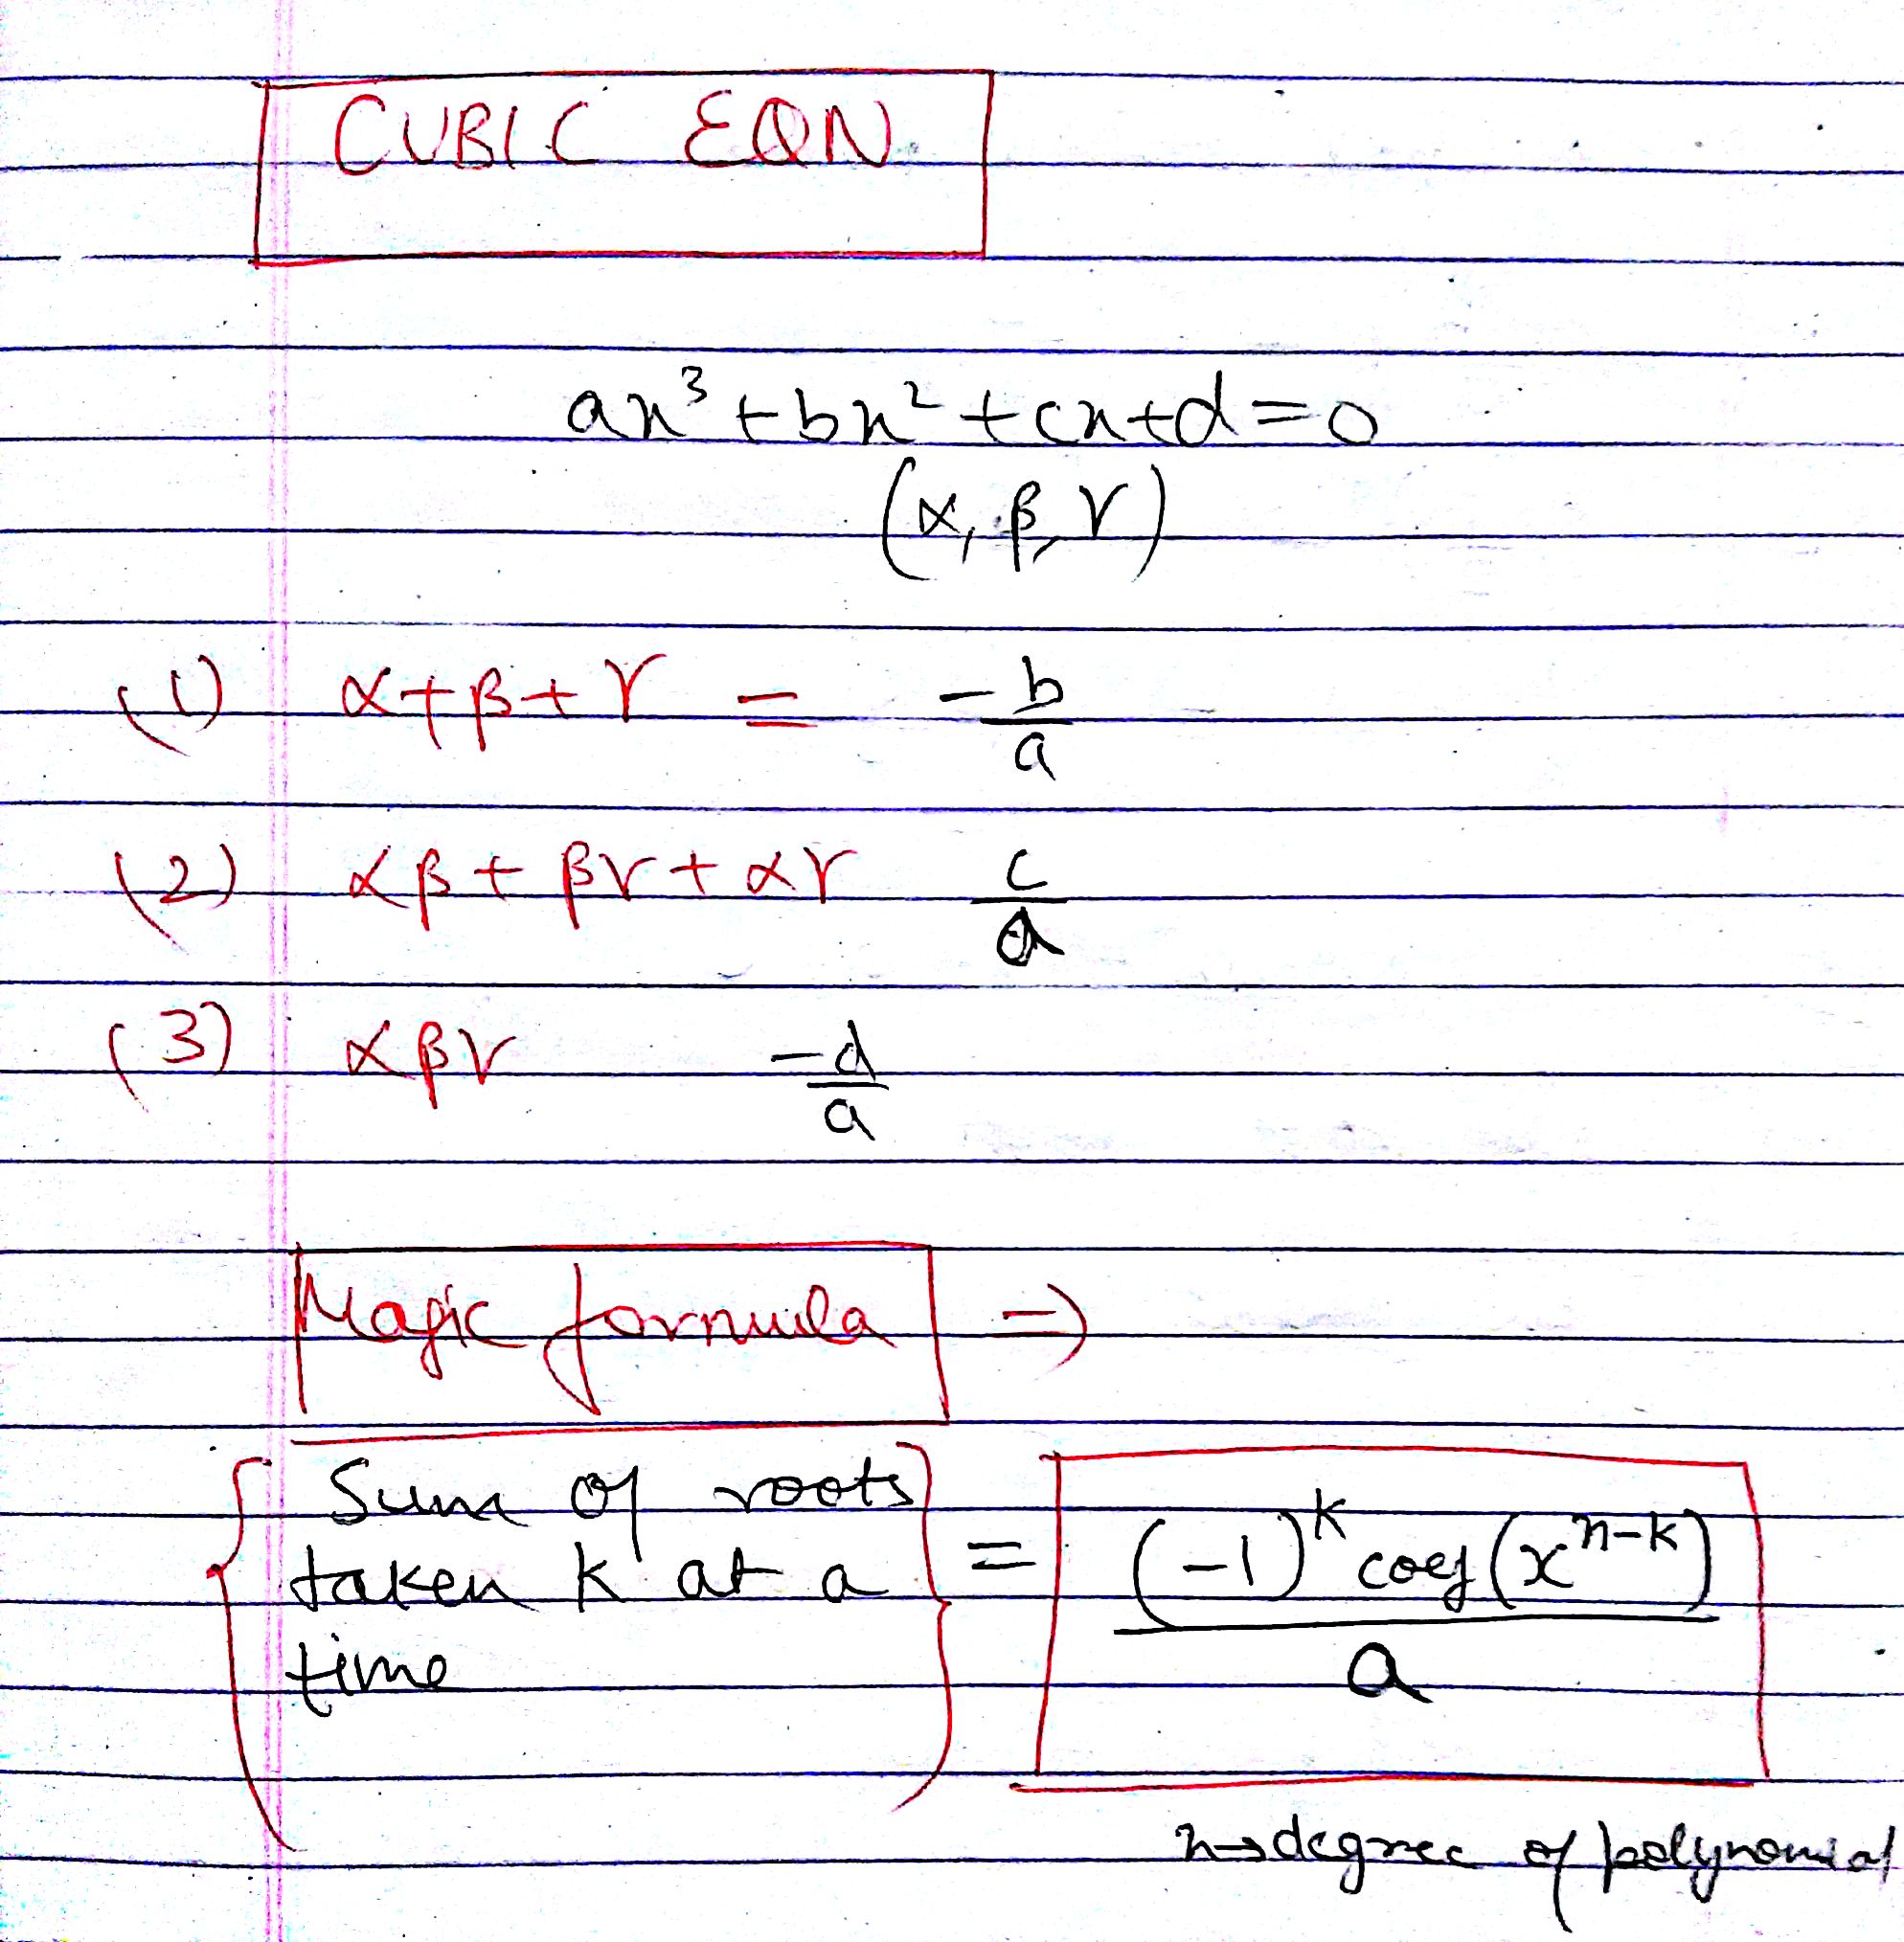 CUBIC EQN
ax³ + bx² + cx + d = 0
(α, β, γ)
(1) α + β + γ = -b/a
(2) αβ + βγ + αγ c/a
(3) αβγ -d/a
Magic formula ⇒
{Sum of roots taken k at a time} = (-1)^k coef(x^(n-k)) / a
n → degree of polynomial